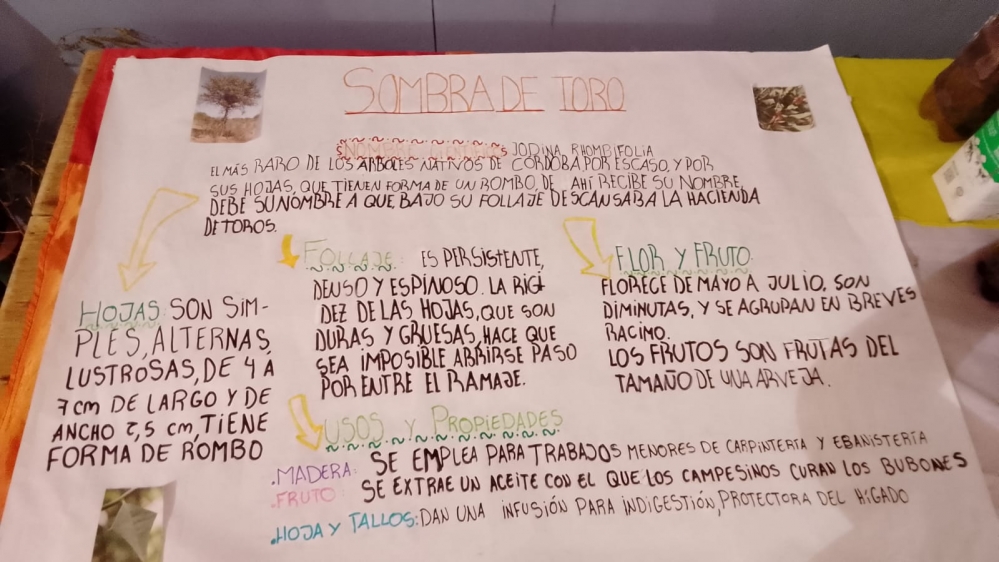 SOMBRA DE TORO
NOMBRE CIENTIFICO: JODINA RHOMBIFOLIA
EL MÁS RARO DE LOS ÁRBOLES NATIVOS DE CÓRDOBA, POR ESCASO, Y POR
SUS HOJAS, QUE TIENEN FORMA DE UN ROMBO, DE AHÍ RECIBE SU NOMBRE,
DEBE SU NOMBRE A QUE, BAJO SU FOLLAJE DESCANSABA LA HACIENDA
DE TOROS.
HOJAS SON SIM-
PLES, ALTERNAS,
LUSTROSAS, DE 4 A
7 cm DE LARGO Y DE
ANCHO 2,5 cm, TIENE
FORMA DE ROMBO
FOLLAJE: ES PERSISTENTE,
DENSO Y ESPINOSO. LA RIGI
DEZ DE LAS HOJAS, QUE SON
DURAS Y GRUESAS, HACE QUE
SEA IMPOSIBLE ABRIRSE PASO
POR ENTRE EL RAMAJE.
FLOR Y FRUTO
FLORECE DE MAYO A JULIO, SON
DIMINUTAS, Y SE AGRUPAN EN BREVES
RACIMO.
LOS FRUTOS SON FRUTAS DEL
TAMAÑO DE UNA ARVEJA.
USOS Y PROPIEDADES
.MADERA: SE EMPLEA PARA TRABAJOS MENORES DE CARPINTERÍA Y EBANISTERÍA
.FRUTO: SE EXTRAE UN ACEITE CON EL QUE LOS CAMPESINOS CURAN LOS BUBONES
.HOJA Y TALLOS: DAN UNA INFUSIÓN PARA INDIGESTIÓN, PROTECTORA DEL HÍGADO